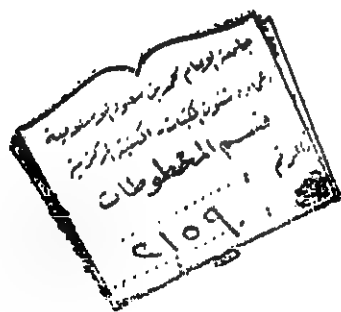 جامعة الإمام محمد بن سعود الإسلامية
عمادة شئون المكتبات - المكتبة المركزية
قسم المخطوطات
الرقم
٢١٥٩